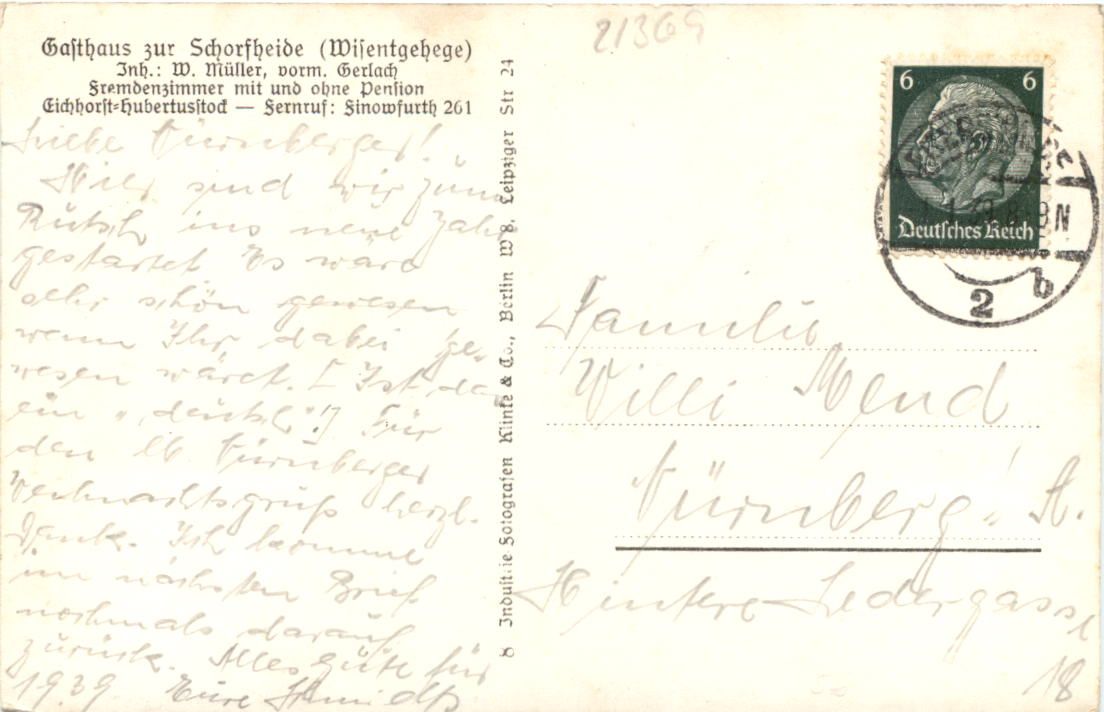 Gasthaus zur Schorfheide (Wisentgehege)
Inh.: W. Müller, vorm. Gerlach
Fremdenzimmer mit und ohne Pension
Eichhorst-Hubertusstock — Fernruf: Finowfurth 261
Liebe Nürnberger!
Hier sind wir zum
Rutsch ins neue Jahr
gestartet. Es wäre
sehr schön gewesen
wenn Ihr dabei ge-
wesen wäret. [Ist das
ein „deutsch"!] Für
den lb. Nürnberger
Weihnachtsgruß herzl.
Dank. Ich komme
im nächsten Brief
nochmals darauf
zurück. Alles Gute für
1939. Eure Schmidts
8 Industrie-Fotografen Klinke & Co., Berlin W 8, Leipziger Str 24
21369
6 6
Deutsches Reich
8-9N
2 b
Familie
Willi Mend
Nürnberg! A.
Hintere Ledergasse
18